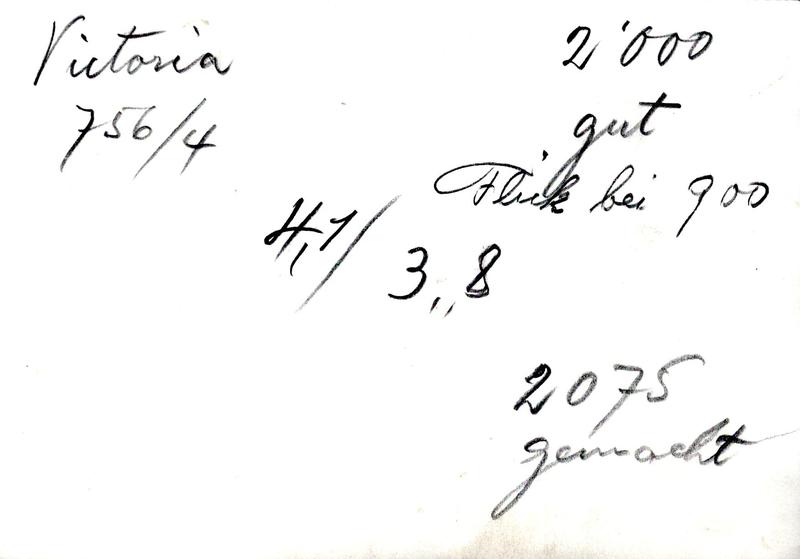 Victoria
756/4
2'000
gut
Flick bei 900
4,1/
3,8
2075
gemacht